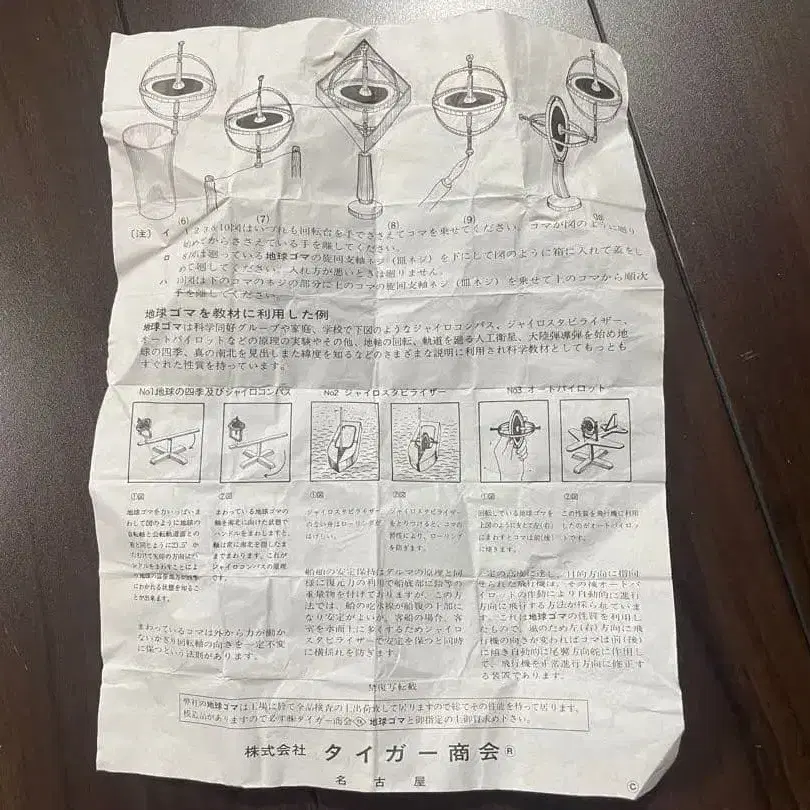 (6)
(7)
(8)
(9)
(10)
〔注〕 イ 1 2 3 6 10図はいづれも回転台を手でささえてコマを乗せてください。コマが図のように廻り
始めてからささえている手を離してください。
ロ 8図は廻っている地球ゴマの旋回支軸ネジ(皿ネジ)を下にして図のように箱に入れて蓋をし
めて廻してください。入れ方が悪いときは廻りません。
ハ 図は下のコマのネジの部分に上のコマの旋回支軸ネジ(皿ネジ)を乗せて上のコマから順次
手を離してください。
地球ゴマを教材に利用した例
地球ゴマは科学同好グループや家庭、学校で下図のようなジャイロコンパス、ジャイロスタビライザー、
オートパイロットなどの原理の実験やその他、地軸の回転、軌道を廻る人工衛星、大陸弾導弾を始め地
球の四季、真の南北を見出しまた緯度を知るなどのさまざまな説明に利用され科学教材としてもっとも
すぐれた性質を持っています。
No1地球の四季及びジャイロコンパス
No2 ジャイロスタビライザー
No3 オートパイロット
①図
地球ゴマを力いっぱいま
わして図のように地球の
自転軸と公転軌道面との
角と同じように23.5°か
たむけて矢印の方向にハ
ンドルをまわすことによ
り地球の
にわかれる状態を知るこ
とが出来ます。
②図
まわっている地球ゴマの
軸を南北に向けた状態で
ハンドルをまわしますと、
軸は常に南北を指したま
ままでまわります。これが
ジャイロコンパスの原理
です。
まわっているコマは外から力が働か
ないかぎり回転軸の向きを一定不変
に保つという法則があります。
①図
ジャイロスタビライザー
のない舟はローリングが
はげしい。
②図
ジャイロスタビライザー
をとりつけると、コマの
習性により、ローリング
を防ぎます。
船舶の安定保持はダルマの原理と同
様に復元力の利用で船底部に鉛等の
重量物を付けておりますが、この方
法では、船の吃水線が船腹の下部に
なり安定がよいが、客船の場合、客
室を水面上に多くするためジャイロ
スタビライザーで安定を保つと同時
に横揺れを防ぎます。
①図
回転している地球ゴマを
上図のように支えて左(右)
にまわすとコマは前(後)
に傾きます。
②図
この性質を飛行機に利用
したのがオートパイロッ
トです。
一定の高度に達し、目的方向に指向
せられた飛行機は、その後オートパ
イロットの作動により自動的に進行
方向に飛行する方法が採られていま
す。これは地球ゴマの性質を利用し
たもので、風のため左(右)方向に飛
行機の向きが変わればコマは前(後)
に傾き自動的に尾翼方向舵に作用し
て、飛行機を正常進行方向に修正す
る装置であります。
禁複写転載
弊社の地球ゴマは工場に於て全品検査の上出荷致して居りますので総てその性能を持って居ります。
模造品がありますので必ず㈱タイガー商会 地球ゴマと御指定の上御買求め下さい。
株式会社 タイガー商会®
名古屋
©